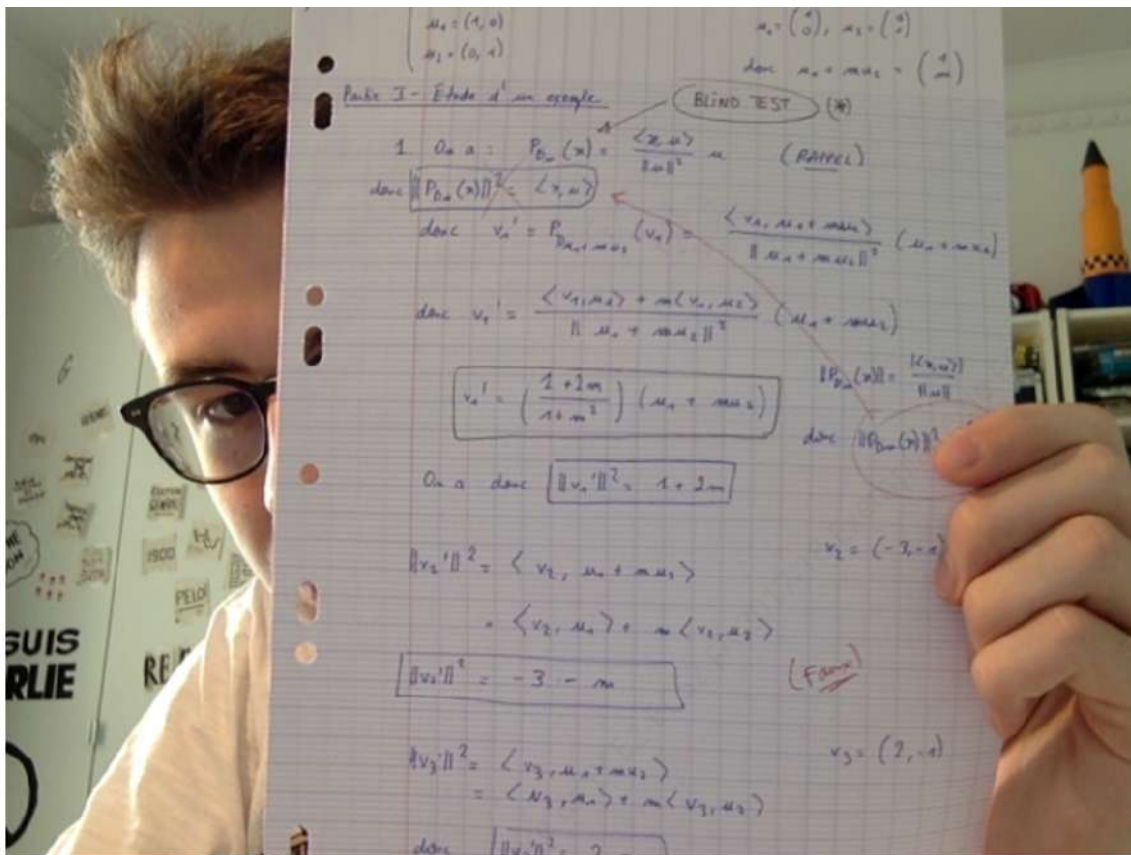 u₁ = (1, 0)
u₂ = (0, 1)
donc u₁ + mu₂ = (1 m)
Partie I - Étude d'un exemple
BLIND TEST (*)
1. On a : P_{D_u}(x) = <x,u> / ||u||² u (RAPPEL)
donc ||P_{D_u}(x)||² = <x,u>
donc v₁' = P_{D_{u₁+mu₂}}(v₁) = <v₁, u₁ + mu₂> / ||u₁ + mu₂||² (u₁ + mu₂)
donc v₁' = <v₁,u₁> + m<v₁,u₂> / ||u₁ + mu₂||² (u₁ + mu₂)
||P_{D_u}(x)|| = |<x,u>| / ||u||
v₁' = (1 + 2m / 1 + m²) (u₁ + mu₂)
donc ||P_{D_u}(x)||²
On a donc ||v₁'||² = 1 + 2m
v₂ = (-3, -1)
||v₂'||² = <v₂, u₁ + mu₂>
= <v₂, u₁> + m<v₂, u₂>
||v₂'||² = -3 - m
(Faux)
v₃ = (2, -1)
||v₃'||² = <v₃, u₁ + mu₂>
= <v₃, u₁> + m<v₃, u₂>
donc ||v₃'||² = 2
SUIS
RLIE
RE
PELO
1900